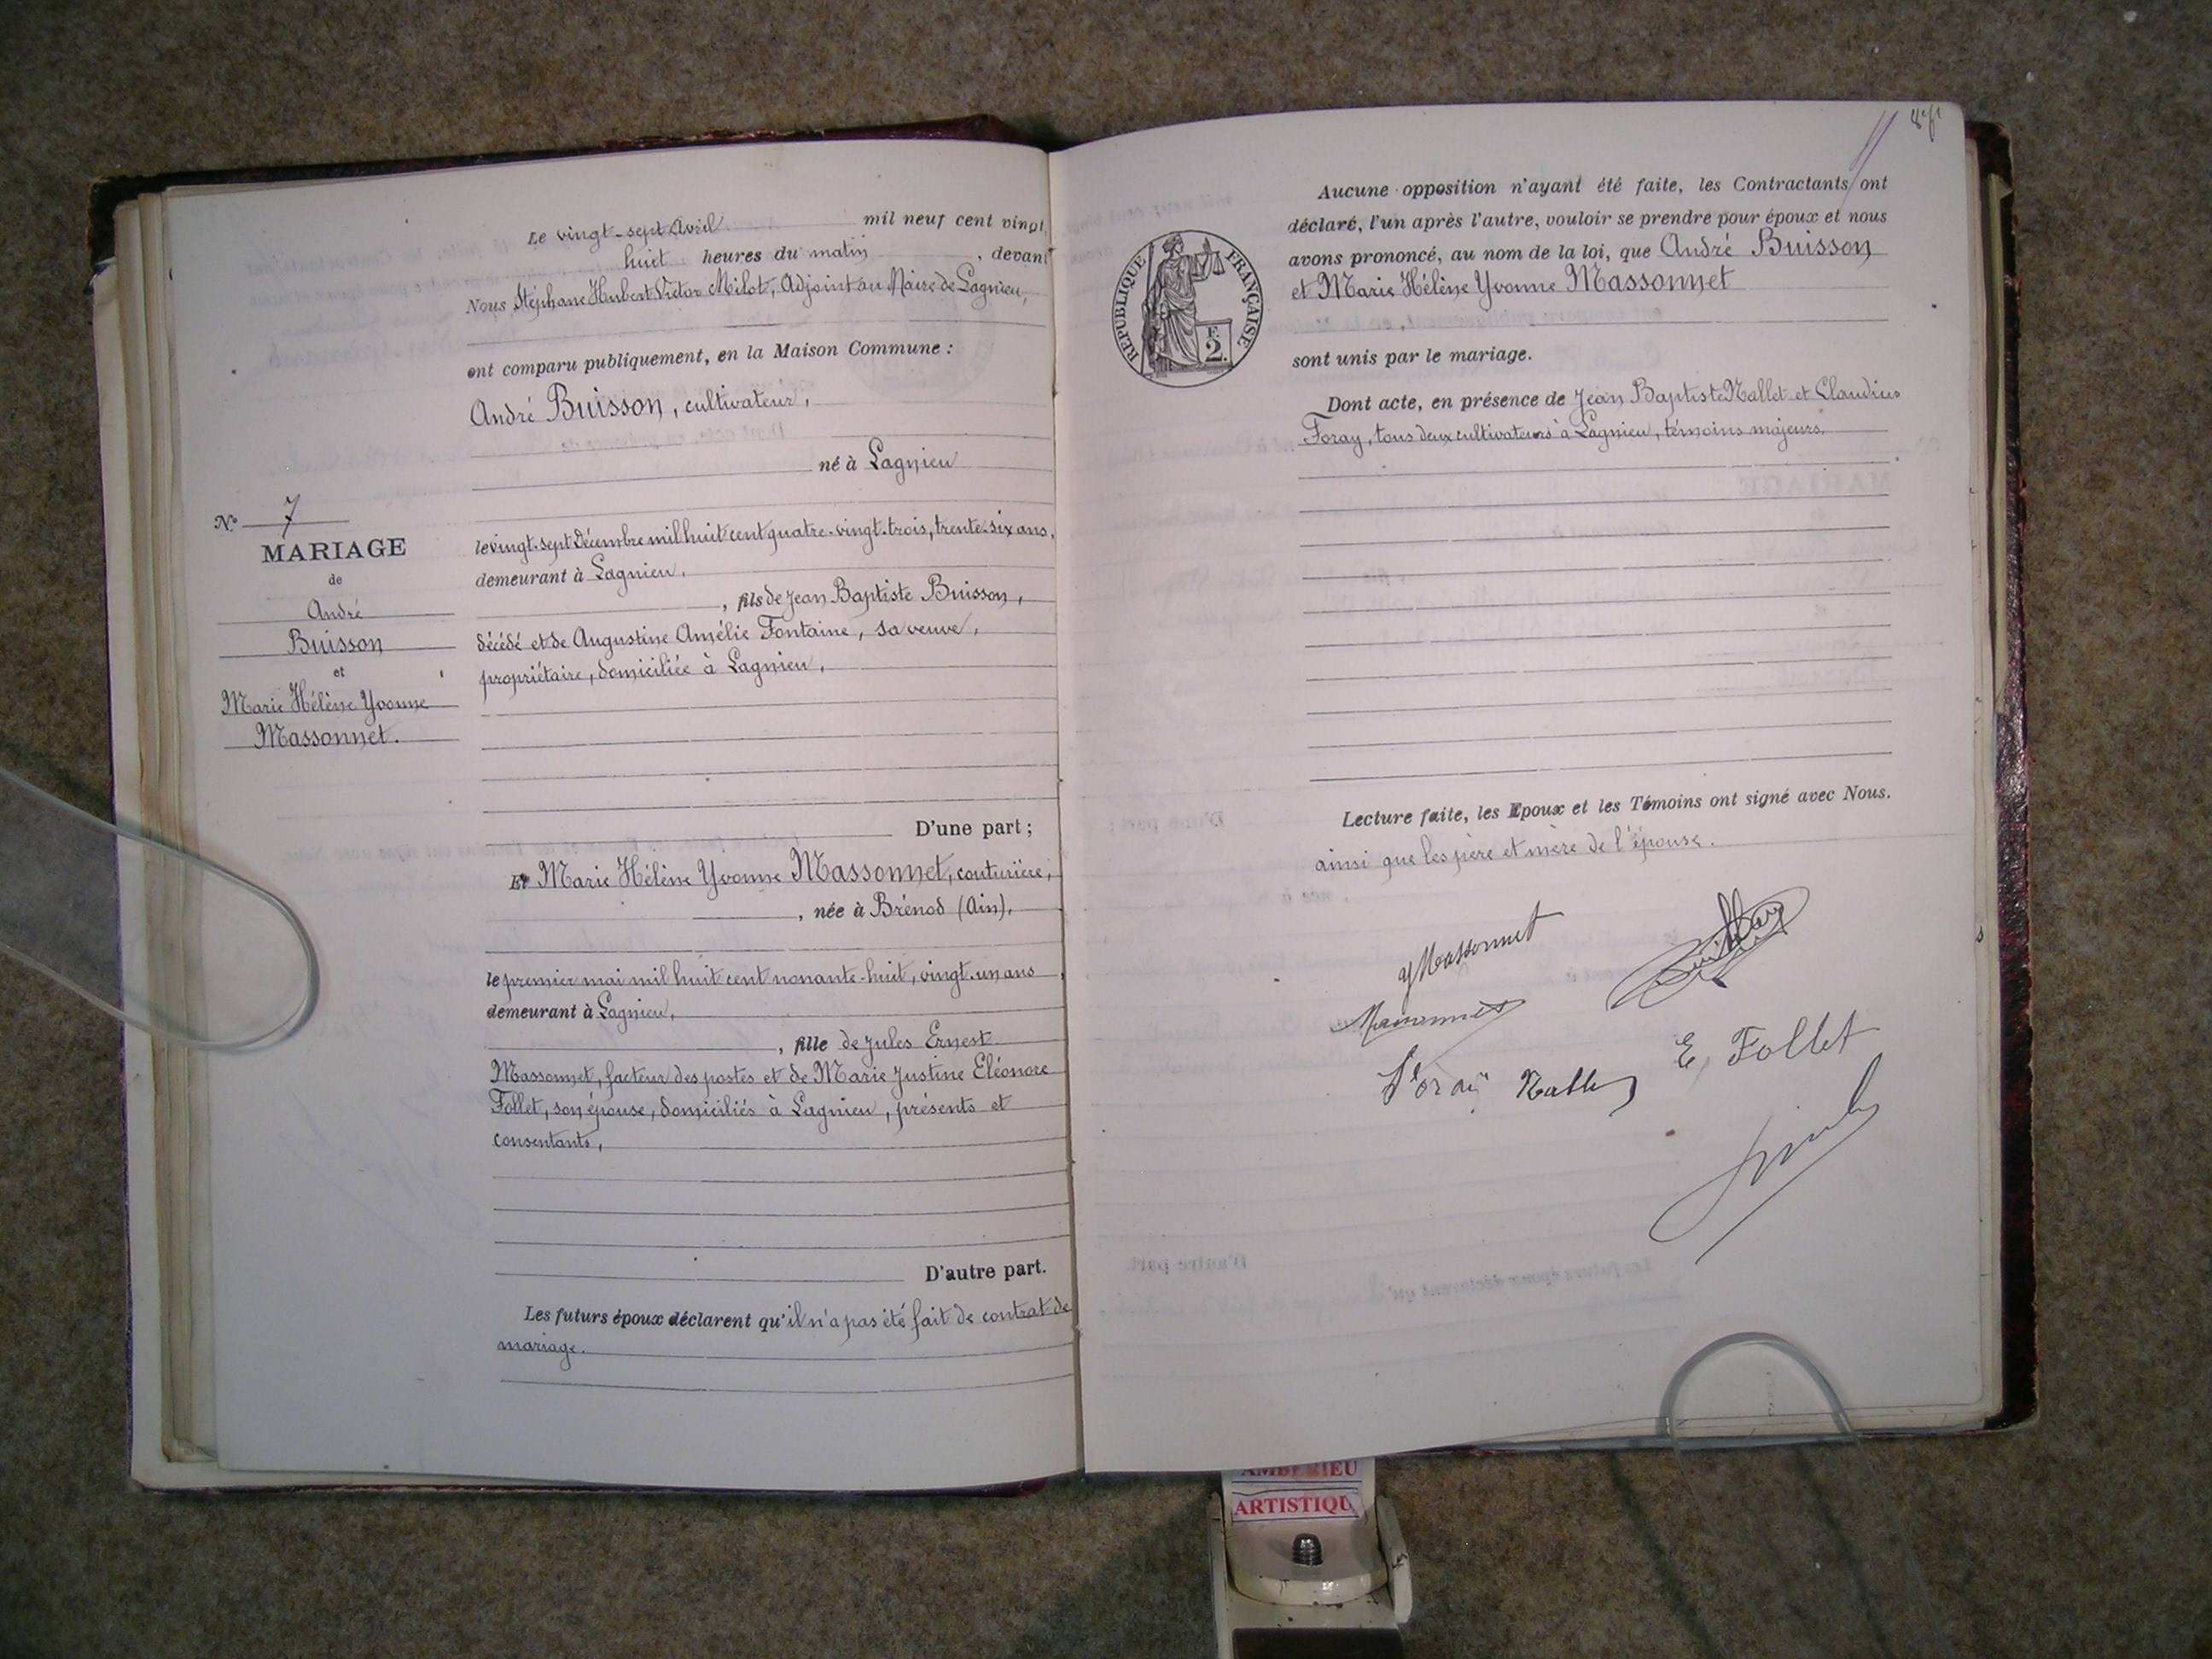 Le vingt-sept Avril mil neuf cent vingt,
huit heures du matin, devant
Nous Stéphane Hubert Victor Milot, Adjoint au Maire de Lagnieu,
ont comparu publiquement, en la Maison Commune :
André Buisson, cultivateur,
né à Lagnieu
le vingt-sept Décembre mil huit cent quatre-vingt-trois, trente-six ans,
demeurant à Lagnieu,
, fils de Jean Baptiste Buisson,
décédé et de Augustine Amélie Fontaine, sa veuve,
propriétaire, domiciliée à Lagnieu,
D'une part ;
Et Marie Hélène Yvonne Massonnet, couturière,
, née à Brénod (Ain),
le premier mai mil huit cent nonante-huit, vingt-un ans
demeurant à Lagnieu,
, fille de Jules Ernest
Massonnet, facteur des postes et de Marie Justine Eléonore
Follet, son épouse, domiciliés à Lagnieu, présents et
consentants,
D'autre part.
Les futurs époux déclarent qu'il n'a pas été fait de contrat de
mariage.
N° 7
MARIAGE
de
André
Buisson
et
Marie Hélène Yvonne
Massonnet.
Aucune opposition n'ayant été faite, les Contractants ont
déclaré, l'un après l'autre, vouloir se prendre pour époux et nous
avons prononcé, au nom de la loi, que André Buisson
et Marie Hélène Yvonne Massonnet
sont unis par le mariage.
Dont acte, en présence de Jean Baptiste Nallet et Claudius
Foray, tous deux cultivateurs à Lagnieu, témoins majeurs.
Lecture faite, les Epoux et les Témoins ont signé avec Nous.
ainsi que les père et mère de l'épouse.
RÉPUBLIQUE FRANÇAISE
F.
2.
Y Massonnet
Massonnet
E. Follet
Foray Nallet
AMBERIEU
ARTISTIQU